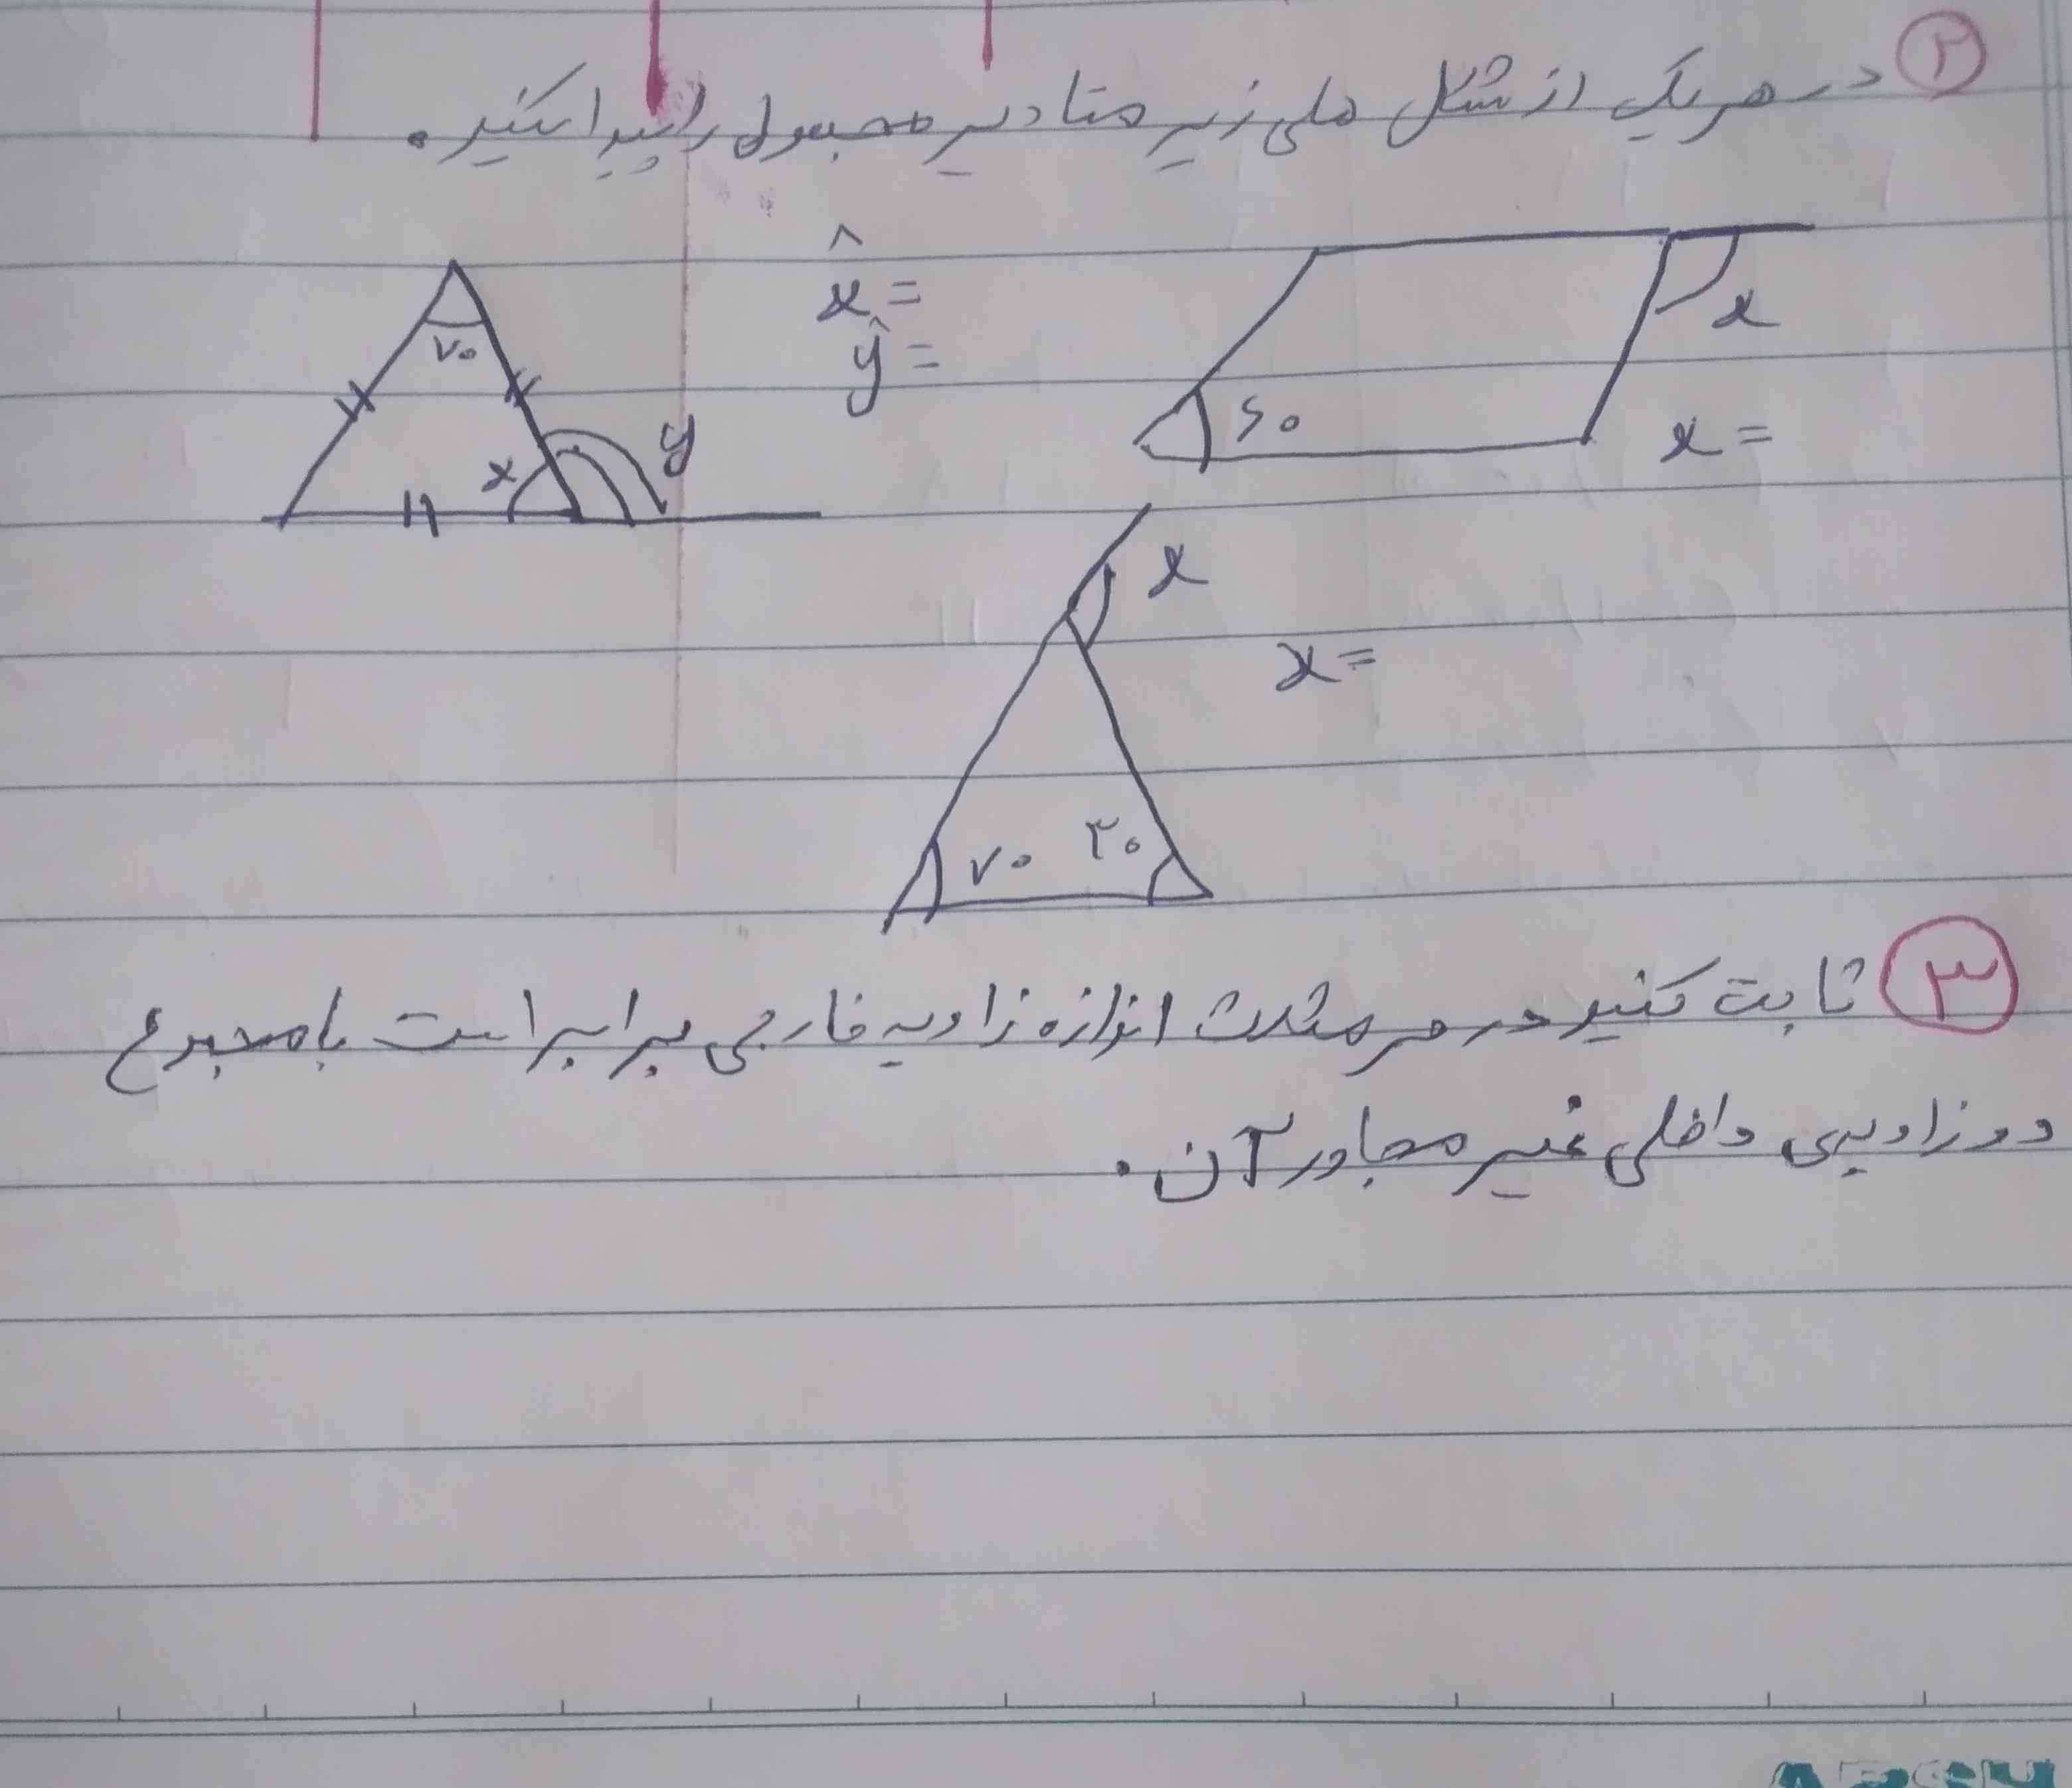 ۲ در هر یک از شکل های زیر مقادیر مجهول را پیدا کنید.
x̂ =
ŷ =
۷۰
x
y
x
۶۰
x =
x
x =
۷۰ ۳۰
۳ ثابت کنید در هر مثلث اندازه زاویه خارجی برابر است با مجموع
دو زاویه‌ی داخلی غیر مجاور آن.